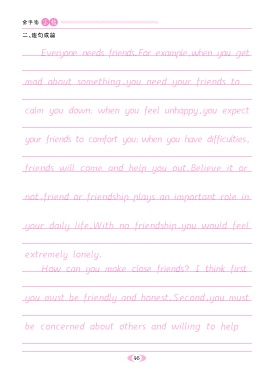 金手指
二、连句成篇
Everyone needs friends.For example,when you get
mad about something,you need your friends to
calm you down; when you feel unhappy,you expect
your friends to comfort you; when you have difficulties,
friends will come and help you out.Believe it or
not,friend or friendship plays an important role in
your daily life.With no friendship,you would feel
extremely lonely.
How can you make close friends? I think first
you must be friendly and honest.Second,you must
be concerned about others and willing to help